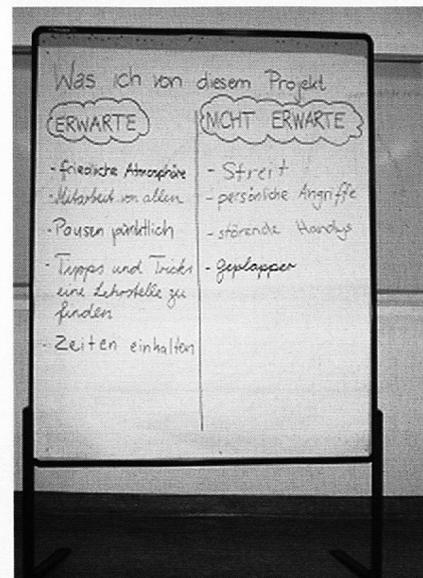 Was ich von diesem Projekt
ERWARTE
- friedliche Atmosphäre
- Mitarbeit von allen
- Pausen pünktlich
- Tipps und Tricks
eine Lehrstelle zu
finden
- Zeiten einhalten
NICHT ERWARTE
- Streit
- persönliche Angriffe
- störende Handys
- geplapper